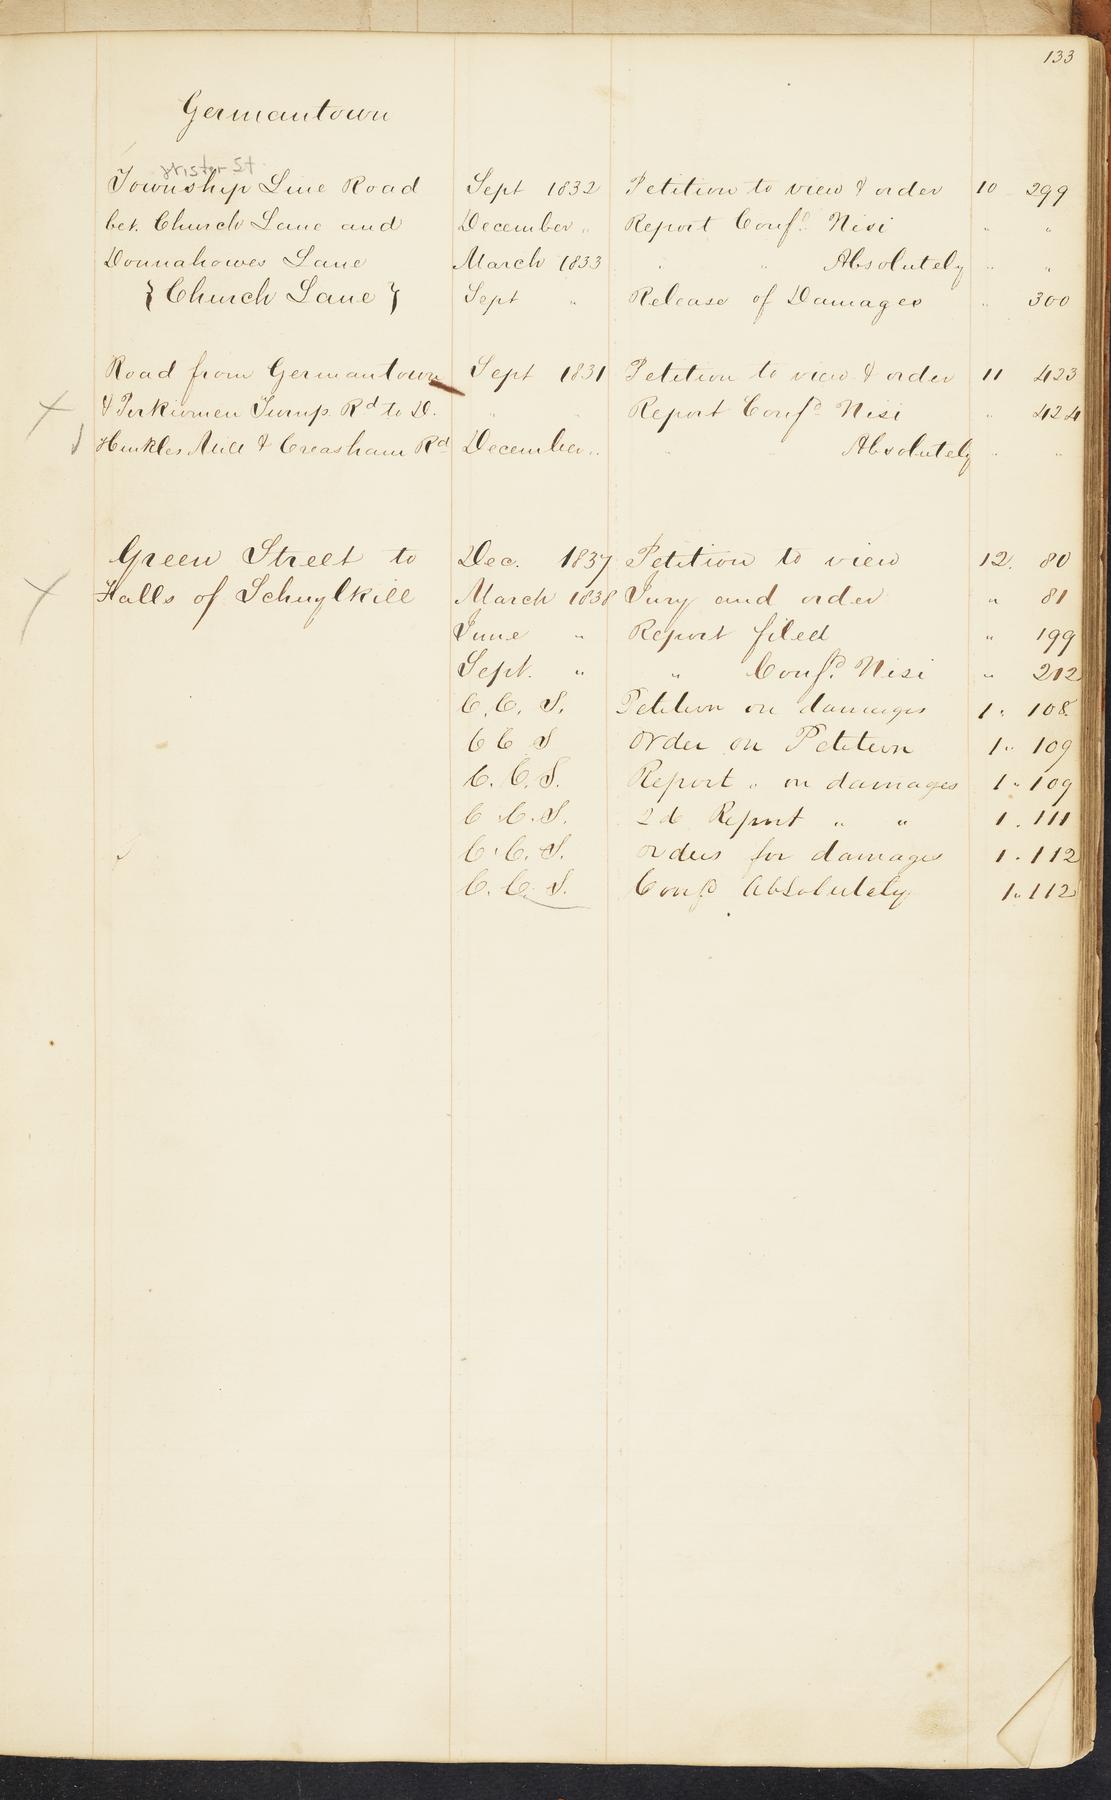 133
Germantown
Wister St
Township Line Road Sept 1832 Petition to view & order 10 299
bet. Church Lane and December " Report Confd. Nisi " "
Donnahowes Lane March 1833 " " Absolutely " "
{ Church Lane } Sept " Release of Damages " 300
Road from Germantown Sept 1831 Petition to view & order 11 423
& Perkiomen Turnp. Rd to D. " " Report Confd. Nisi " 424
Hinkles Mill & Creasham Rd December " " " Absolutely " "
Green Street to Dec. 1837 Petition to view 12. 80
Falls of Schuylkill March 1838 Jury and order " 81
June " Report filed " 199
Sept. " " Confd. Nisi " 212
C. C. S. Petition on damages 1 " 108.
C C S order on Petition 1 " 109
C. C. S. Report " on damages 1 " 109
C. C. S. 2d Report " " 1 . 111
C. C. S. orders for damages 1 . 112
C. C. S. Confd Absolutely 1 " 112